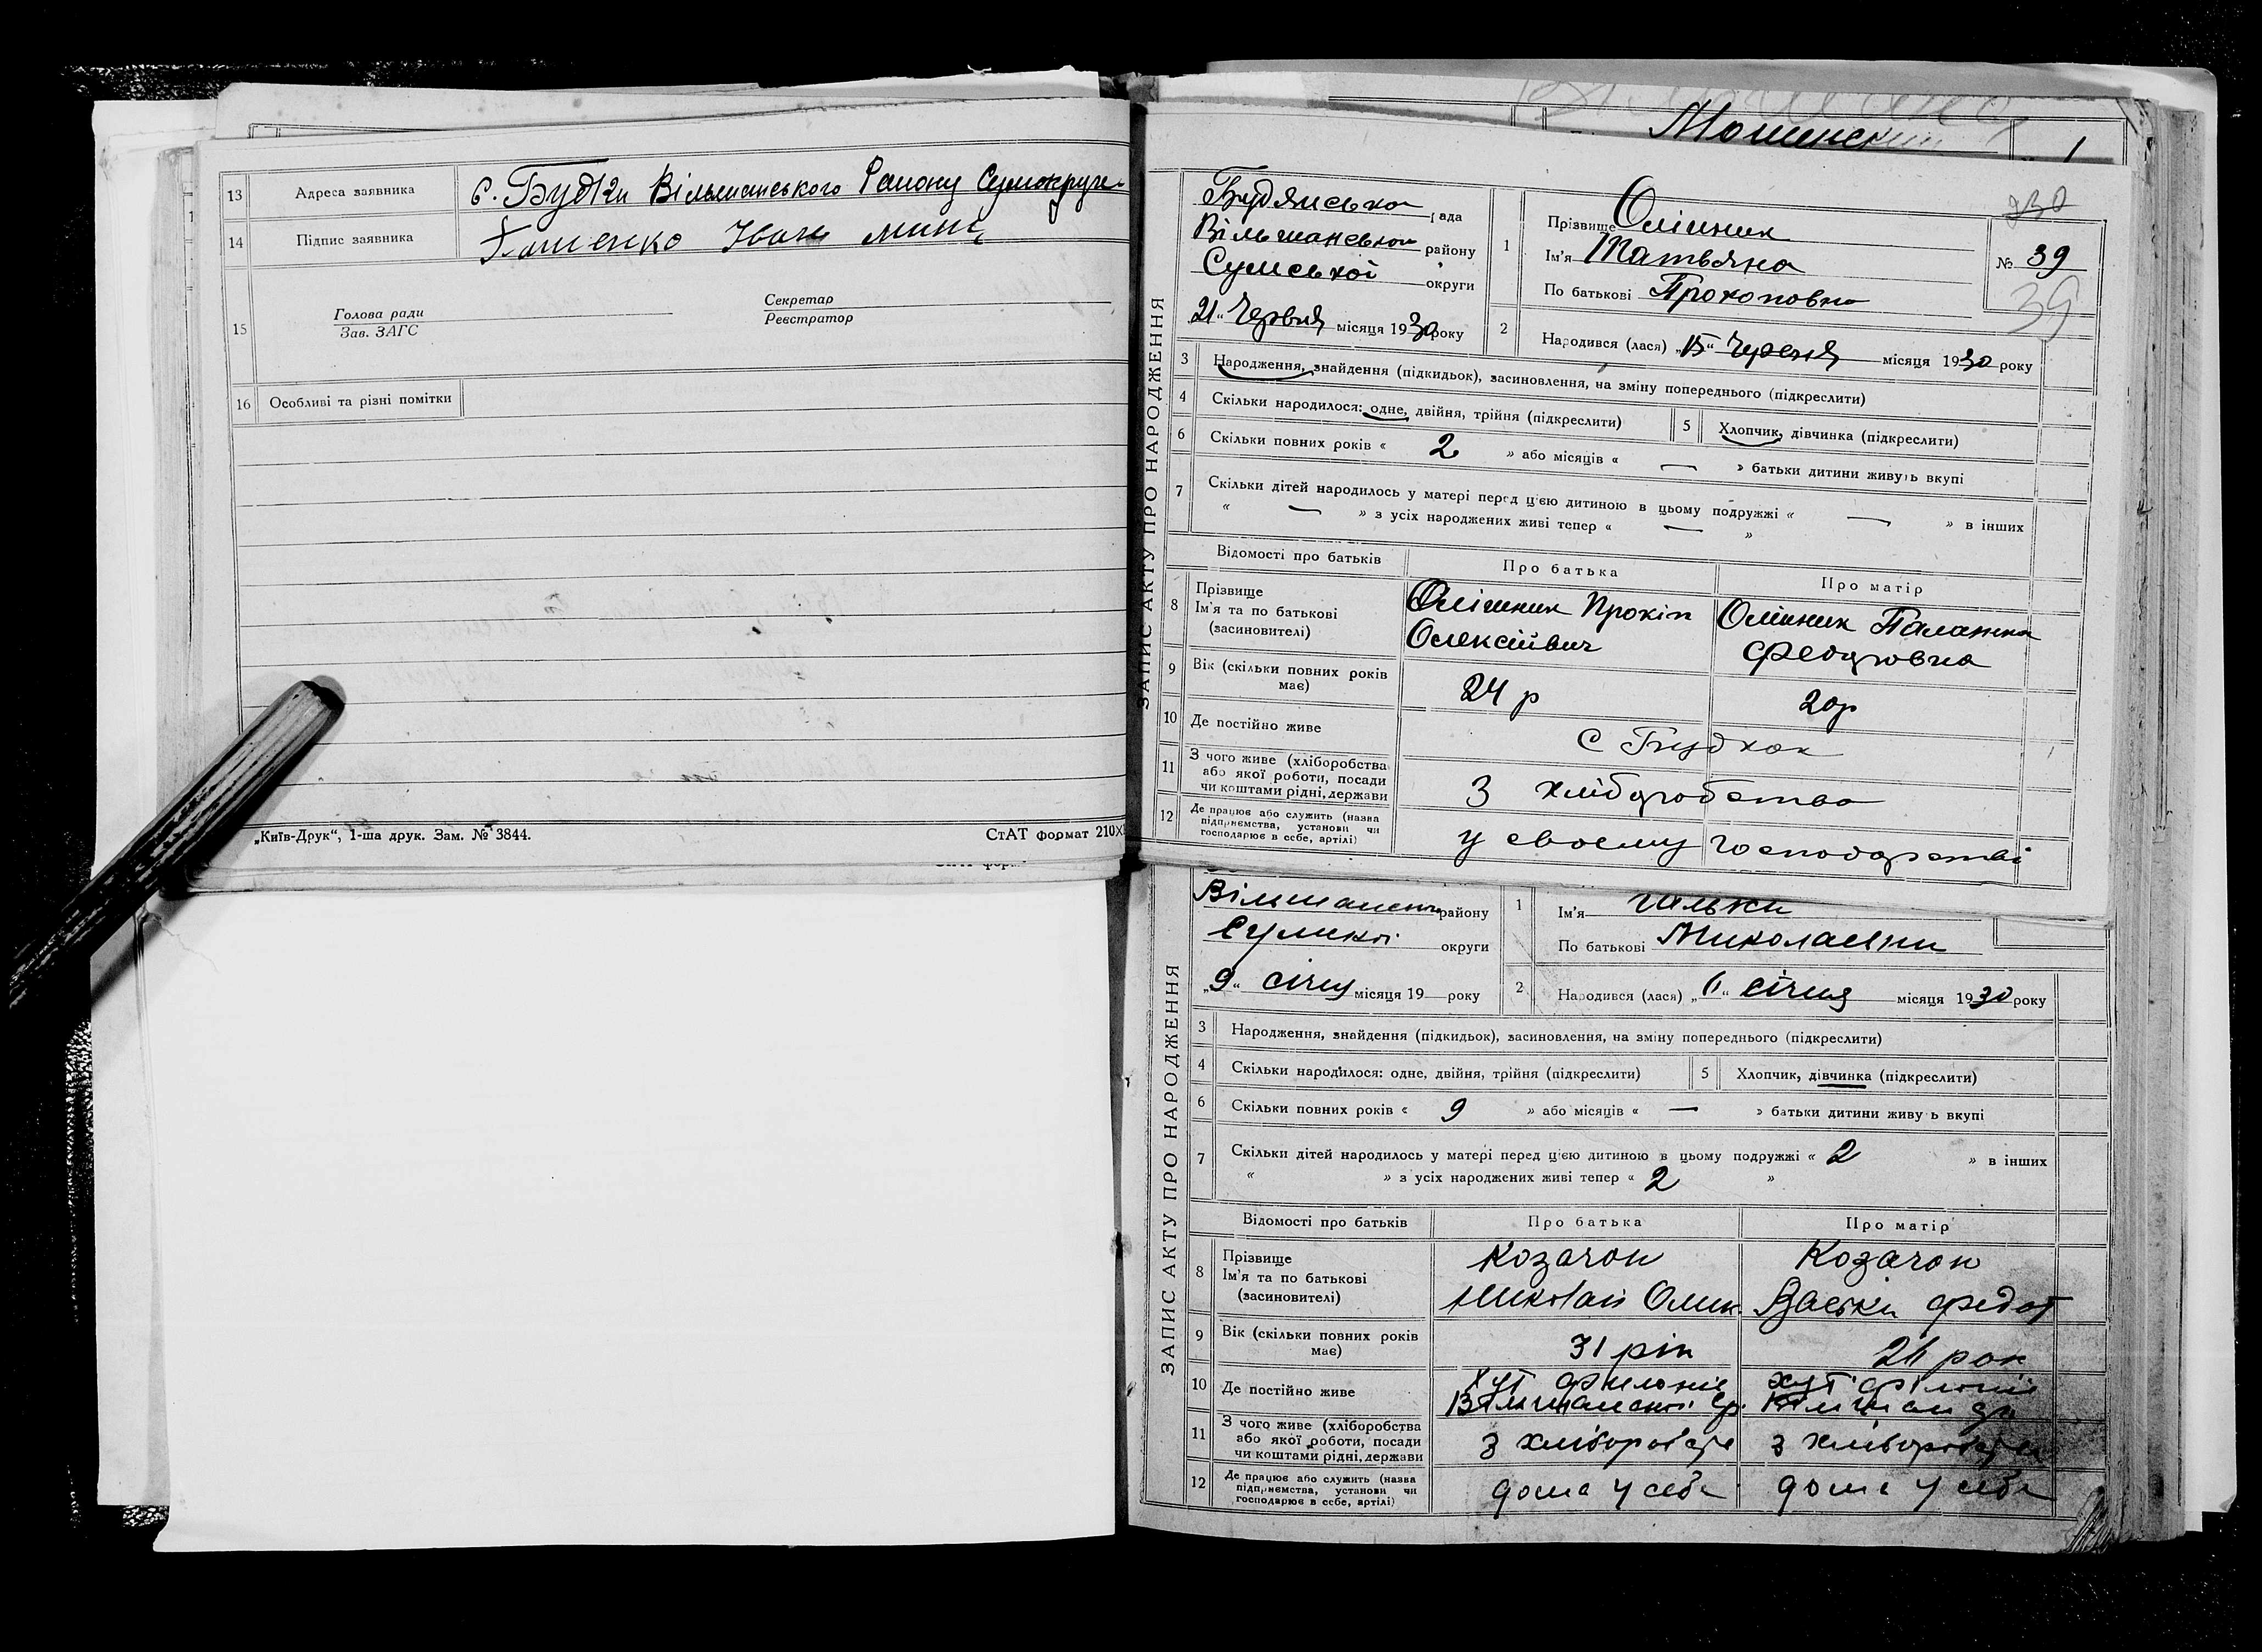 13 Адреса заявника с. Будки Вільшанського Району Сумокруги
14 Підпис заявника Іван
15 Голова ради
Зав. ЗАГС
Секретар
Реєстратор
16 Особливі та різні помітки
„Київ-Друк“, 1-ша друк. Зам. № 3844.
СтАТ формат 210
ЗАПИС АКТУ ПРО НАРОДЖЕННЯ
Будянська рада
Вільшанської району
Сумської округи
21 Червня місяця 1930 року
1 Прізвище Олійник
Ім'я Татьяна
По батькові Прокоповна
№ 39
39
2 Народився (лася) „15“ Червня місяця 1930 року
3 Народження, знайдення (підкидьок), засиновлення, на зміну попереднього (підкреслити)
4 Скільки народилося: одне, двійня, трійня (підкреслити)
5 Хлопчик, дівчинка (підкреслити)
6 Скільки повних років « 2 » або місяців « — » батьки дитини живуть вкупі
7 Скільки дітей народилось у матері перед цією дитиною в цьому подружжі « — » в інших
« — » з усіх народжених живі тепер « — »
Відомості про батьків Про батька Про матір
8 Прізвище
Ім'я та по батькові
(засиновителі)
Олійник Прокіп
Олексійвич
Олійник Палажка
Федоровна
9 Вік (скільки повних років має) 24 р 20 р
10 Де постійно живе С Будках
11 З чого живе (хліборобства
або якої роботи, посади
чи коштами рідні, держави
З хліборобства
12 Де працює або служить (назва
підприємства, установи чи
господарює в себе, артілі)
у своему господарстві
ЗАПИС АКТУ ПРО НАРОДЖЕННЯ
району
Сумської округи
„9“ січня місяця 19 — року
1 Ім'я
По батькові Миколаевни
2 Народився (лася) січня місяця 1930 року
3 Народження, знайдення (підкидьок), засиновлення, на зміну попереднього (підкреслити)
4 Скільки народилося: одне, двійня, трійня (підкреслити)
5 Хлопчик, дівчинка (підкреслити)
6 Скільки повних років « 9 » або місяців « — » батьки дитини живуть вкупі
7 Скільки дітей народилось у матері перед цією дитиною в цьому подружжі « 2 » в інших
« » з усіх народжених живі тепер « 2 »
Відомості про батьків Про батька Про матір
8 Прізвище
Ім'я та по батькові
(засиновителі)
Козачок
Николай
Козачок
Федот
9 Вік (скільки повних років має) 31 рік
10 Де постійно живе
11 З чого живе (хліборобства
або якої роботи, посади
чи коштами рідні, держави
12 Де працює або служить (назва
підприємства, установи чи
господарює в себе, артілі)
дома у себе дома у себе